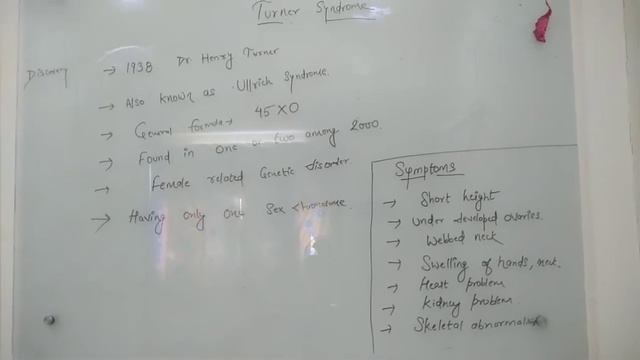 Turner Syndrome
Discovery → 1938 Dr. Henry Turner
→ Also known as Ullrich Syndrome.
→ General formula → 45 XO
→ Found in one or two among 2000.
→ Female related Genetic disorder
→ Having only one Sex chromosome.
Symptoms
→ Short height
→ Under developed ovaries.
→ Webbed neck
→ Swelling of hands, neck.
→ Heart problem
→ Kidney problem.
→ Skeletal